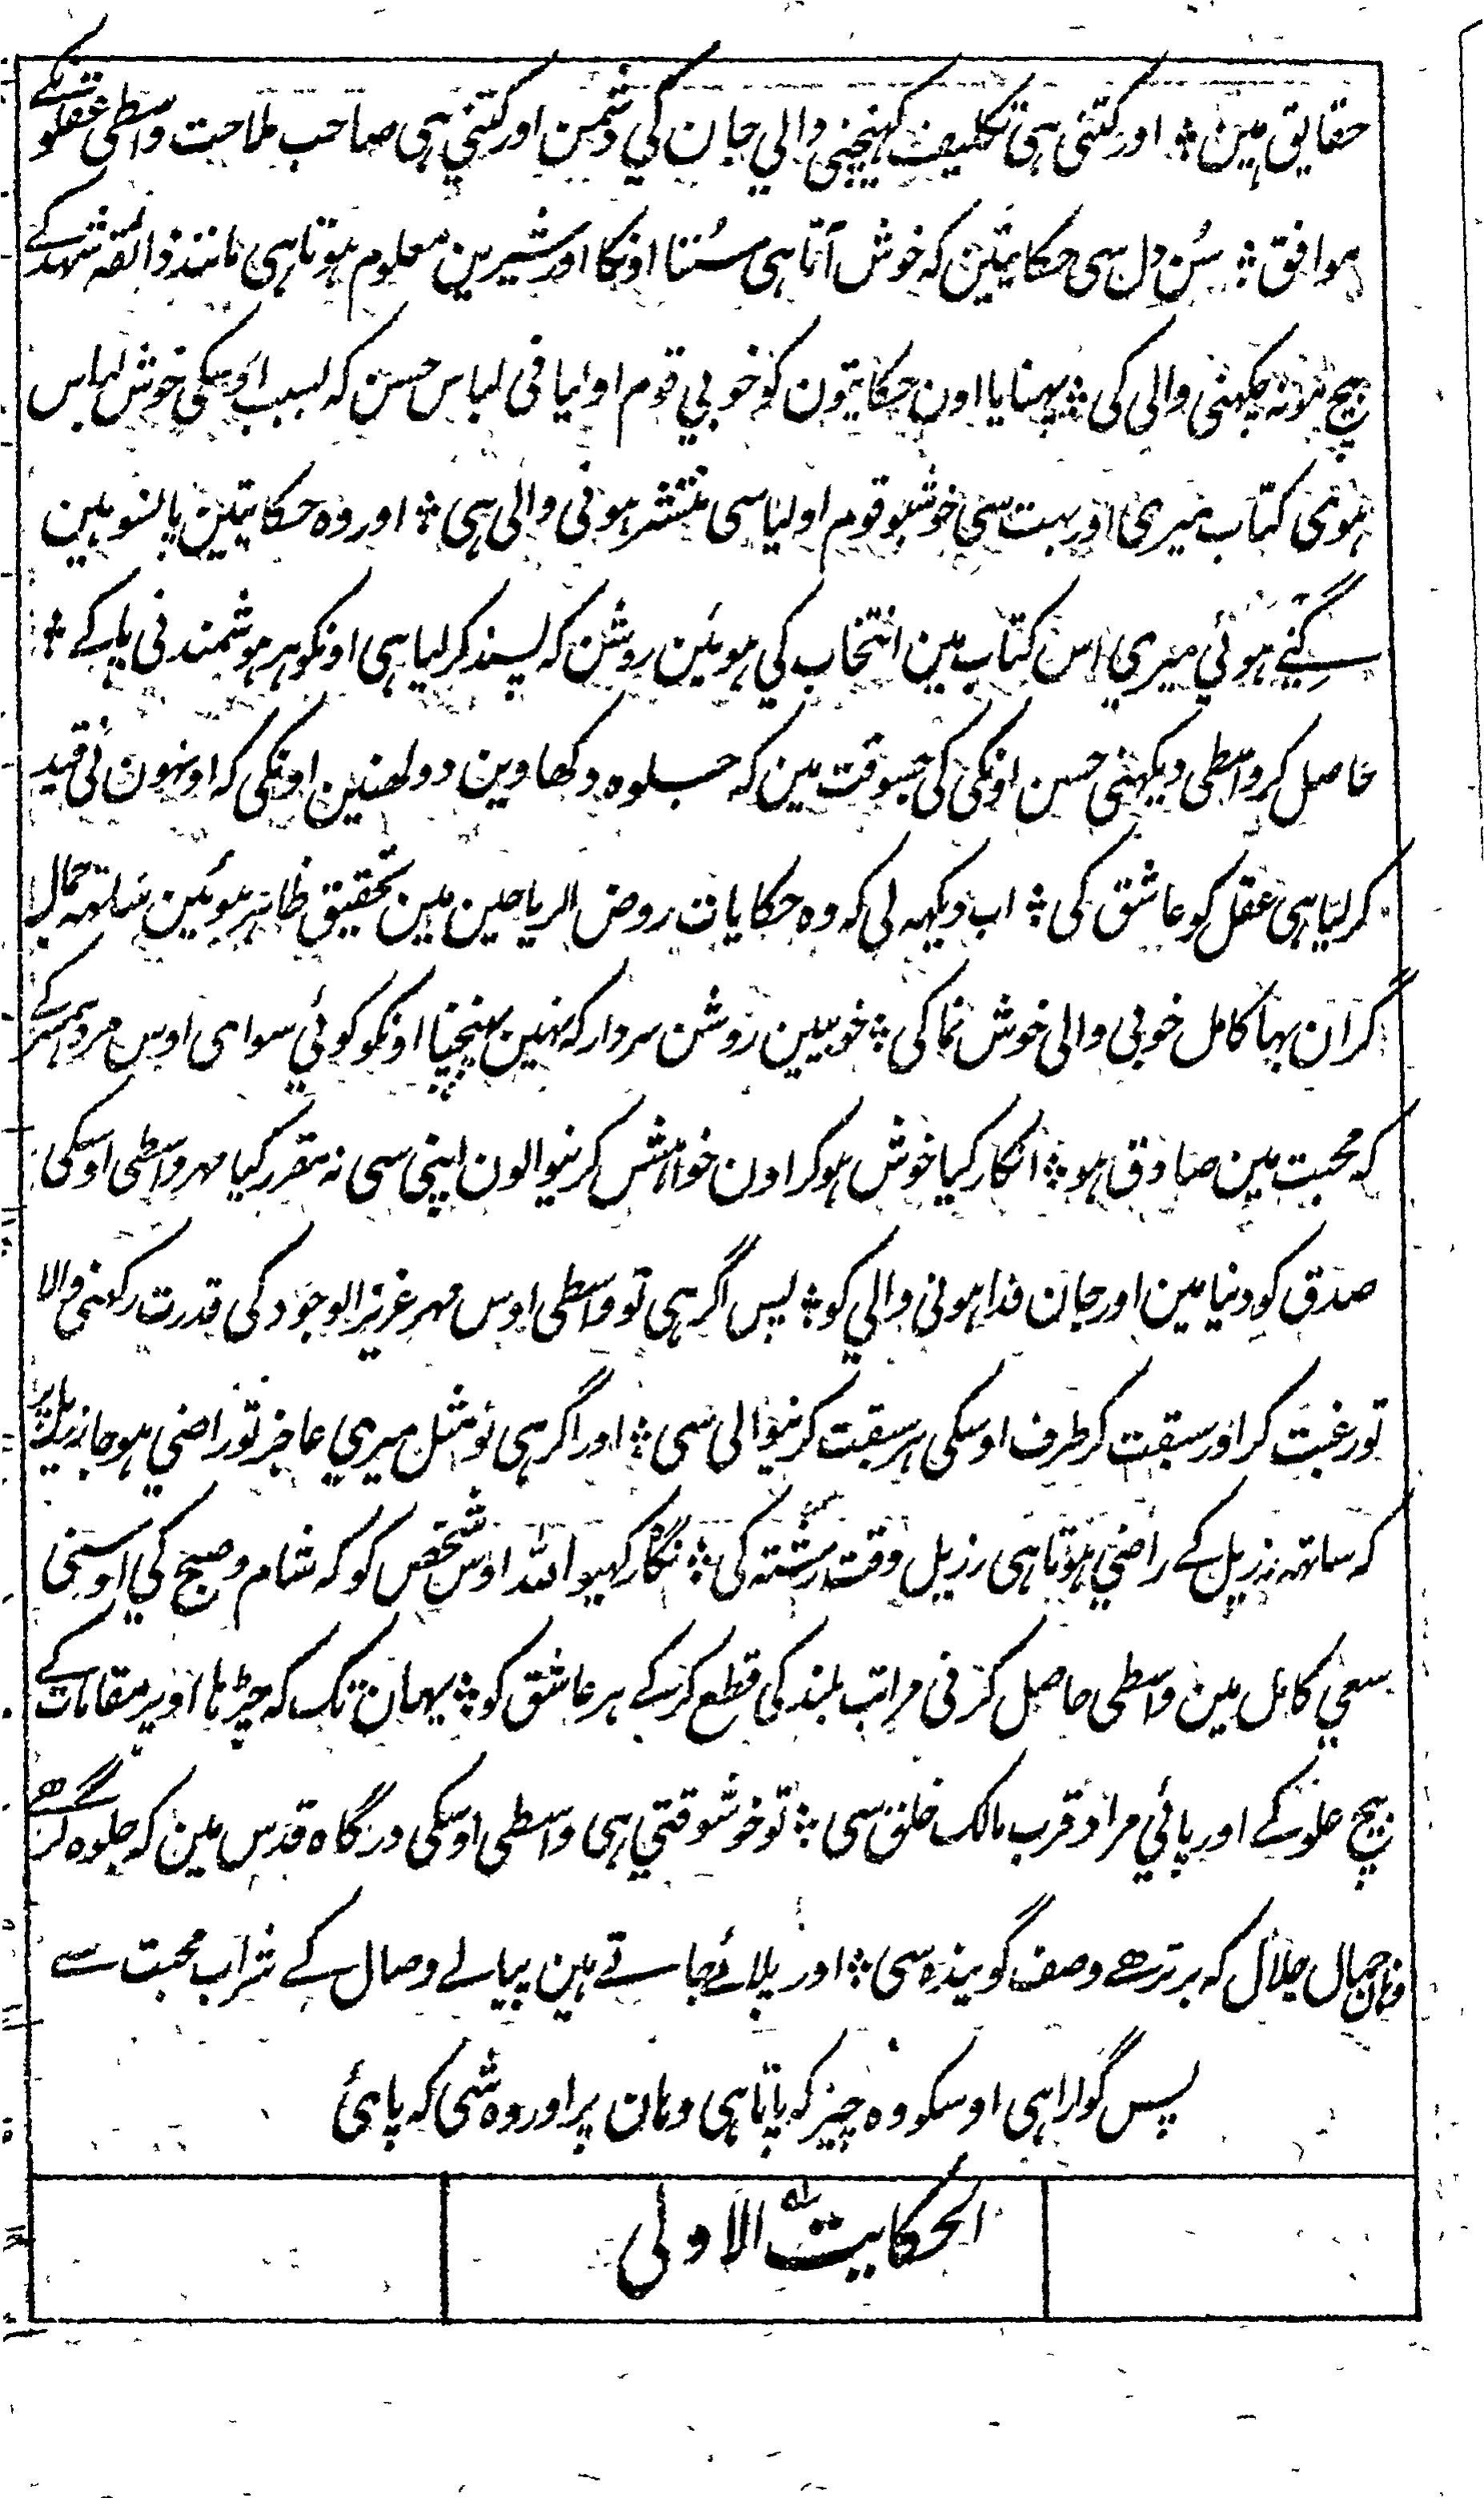 حقایق ہین ؞ اور کتنی ہی تکلیف کہینچنی والی جان کی دشمن اور کتنی ہی صاحب ملاحت واسطی عقلونکے
موافق ؞ سُن دل سی حکایتین کہ خوش آتا ہی سُننا اونکا اور شیرین معلوم ہوتا ہی مانند ذائقہ شہد کے
بیچ مونہ چکہنی والی کی ؞ پہنایا اون حکایتون کو خوبی قوم اولیا نی لباس حسن کہ بسبب اوسکی خوش لباس
ہوئی کتاب میری اور بہت سی خوشبو قوم اولیا سی منتشر ہونی والی ہی ؞ اور وہ حکایتین پانسو ہین
گنے ہوئی میری اس کتاب مین انتخاب کی ہوئین روشن کہ پسند کر لیا ہی اونکو ہر ہوشمند نی پا کے ؞
حاصل کر واسطی دیکہنی حسن اونکی کی جسوقت مین کہ جلوہ دکھاوین دولھنین اونکی کہ اونہون نی قید
کر لیا ہی عقل کو عاشق کی ؞ اب دیکہہ لی کہ وہ حکایات روض الریاحین مین تحقیق ظاہر ہوئین ساتہہ جمال
گران بہا کامل خوبی والی خوش نما کی ؞ خوبین روشن سردار کہ نہین پہنچتا اونکو کوئی سوای اوس مرد
کہ محبت مین صادق ہو ؞ انکار کیا خوش ہو کر اون خواہش کرنیوالون اپنی سی نہ مقرر کیا مہر واسطی اوسکی
صدق کو دنیا مین اور جان فدا ہونی والی کو ؞ پس اگر ہی تو واسطی اوس مہر عزیز الوجود کی قدرت رکہنی والا
تو رغبت کر اور سبقت کر طرف اوسکی ہر سبقت کرنیوالی سی ؞ اور اگر ہی تو مثل میری عاجز تو راضی ہو جا رذیل پر
کہ ساتھہ رذیل کے راضی ہوتا ہی رذیل وقت رشتہ کی ؞ اللہ اوس شخص کو کہ شام و صبح کی اوسنی
سعی کامل مین واسطی حاصل کرنی مراتب بلند کی قطع کر کے ہر عاشق کو ؞ یہان تک کہ چڑہا اوپر مقامات کے
بیچ علو کے اور پائی مراد قرب مالک خلق سی ؞ تو خوشوقتی ہی واسطی اوسکی درگاہ قدس مین کہ جلوہ گر ھے
وہان جمال جلال کہ برتر ھے وصف گویندہ سی ؞ اور پلائے جاتے ہین پیالے وصال کے شراب محبت سے
پس گوارا ہی اوسکو وہ چیز کہ پاتا ہی وہان پر اور وہ شی کہ پائ
الحکایت الاولی